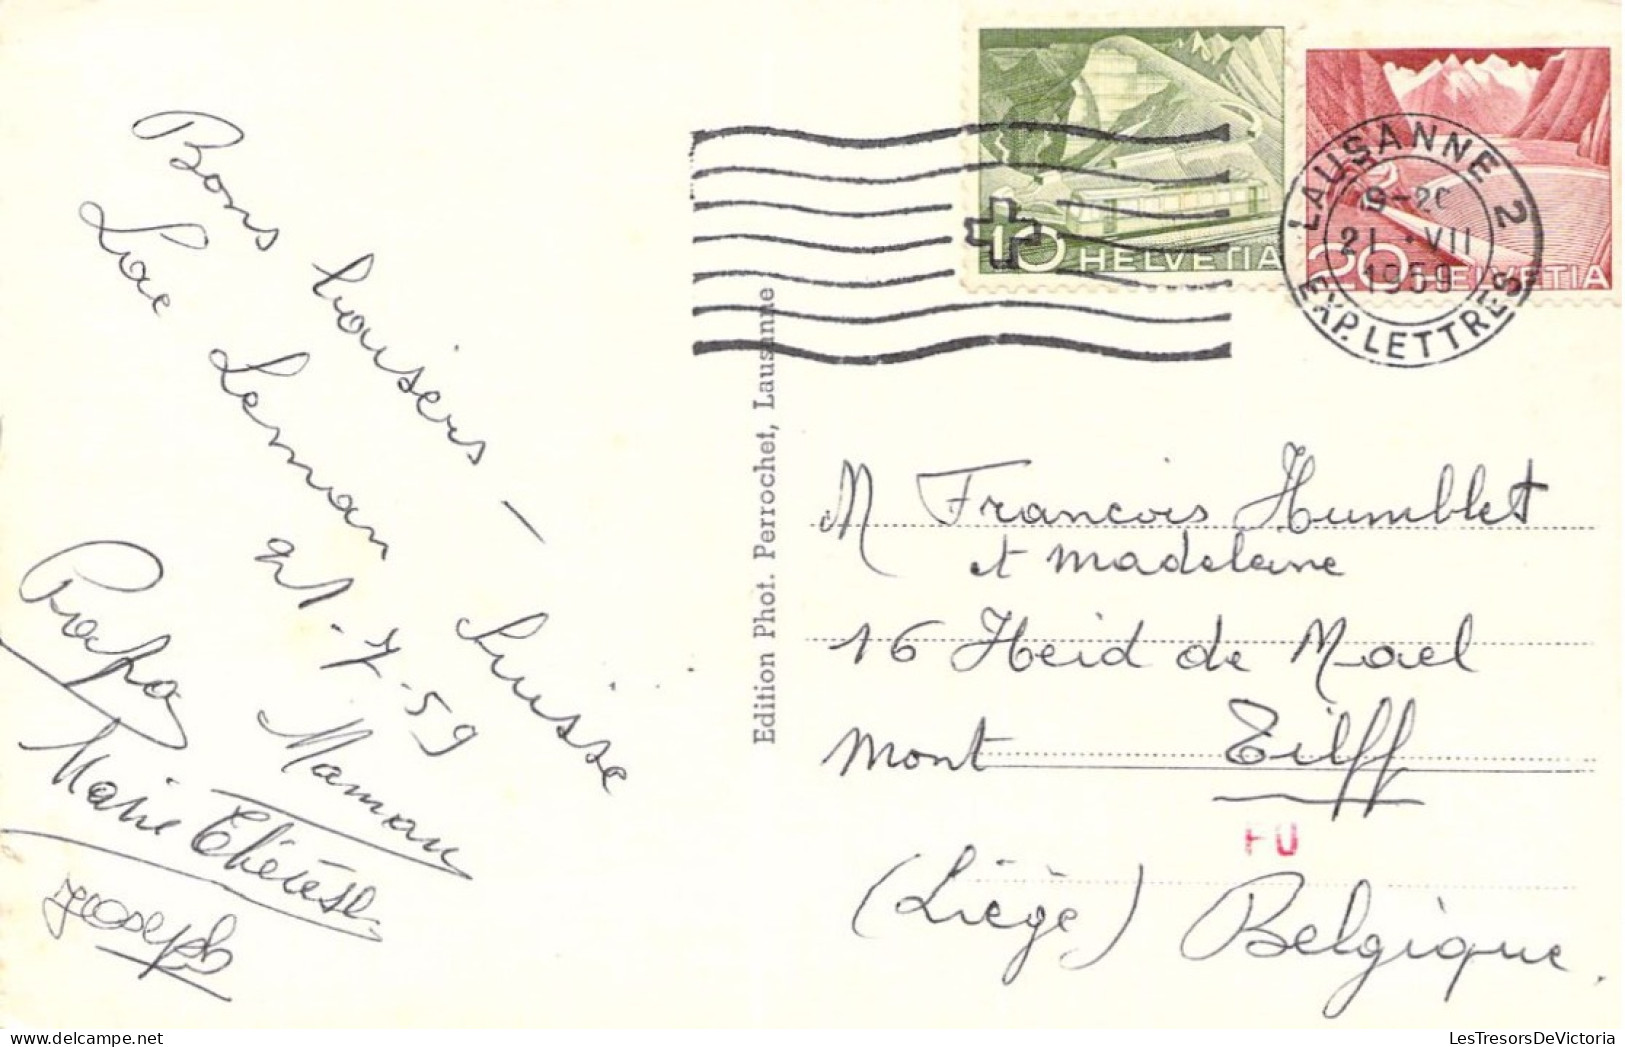 Bons baisers -
Lac Leman Suisse
21-7-59
Papa Maman
Marie Thérèse
Joseph
Edition Phot. Perrochet, Lausanne
10 HELVETIA
20 HELVETIA
LAUSANNE 2
19-20
21.VII
1959
EXP. LETTRES
M Francois Humblet
et Madeleine
16 Heid de Mael
Mont Tilff
FU
(Liège) Belgique.
LesTresorsDeVictoria